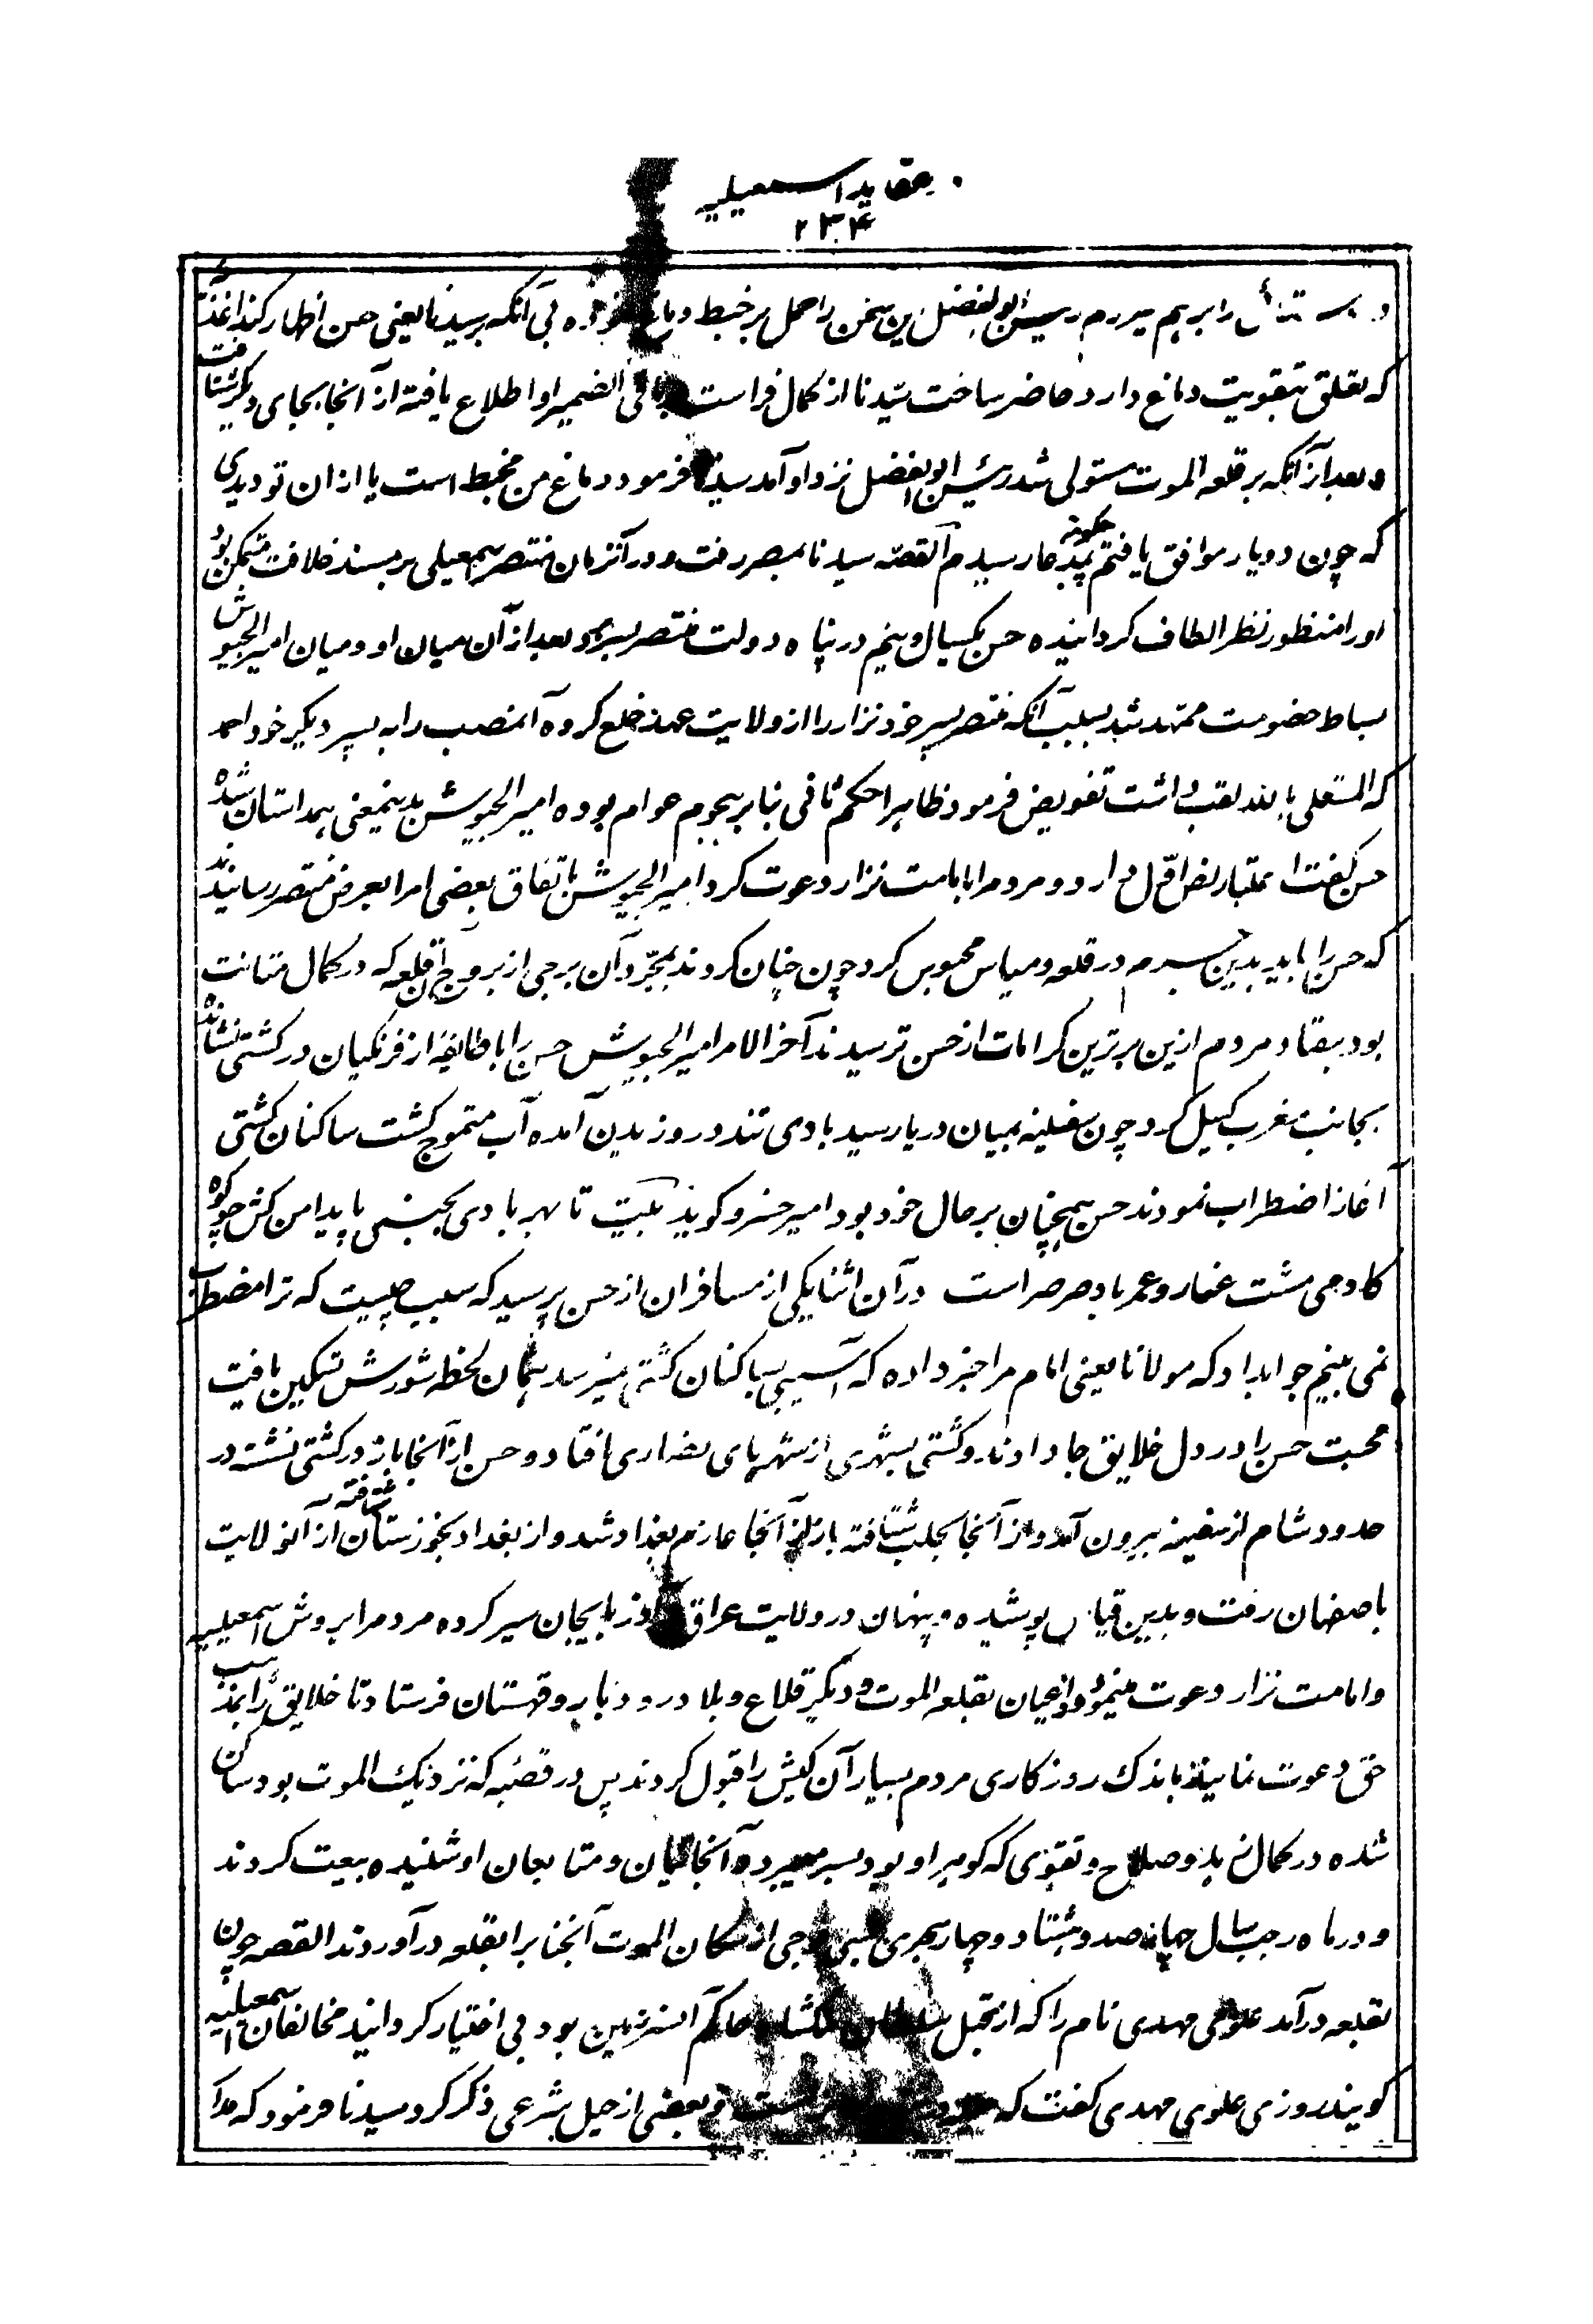 عقاید اسمعیلیه
۲۳۴
را برهم میزدم رئیس ابوالفضل این سخن را حمل بر خبط دماغ نموده بی آنکه بر سیدنا یعنی حسن اظهار کند اغذیه
که تعلق بتقویت دماغ دارد حاضر ساخت سیدنا از کمال فراست بر ما فی الضمیر او اطلاع یافته از آنجا بجای دیگر شتافت
و بعد از آنکه بر قلعه الموت مستولی شد رئیس ابوالفضل نزد او آمد سیدنا فرمود دماغ من مخبط است یا ازان تو دیدی
که چون دو یار موافق یافتم چگونه بمدعا رسیدم القصه سیدنا بمصر رفت و در آنزمان منتصر اسمعیلی بر مسند خلافت متمکن بود
اورا منظور نظر الطاف گردانیده حسن یکسال و نیم در پناه دولت منتصر بسر برد بعد از آن میان او و میان امیر الجیوش
بساط خصومت ممهد شد بسبب آنکه منتصر پسر خود نزار را از ولایت عهد خلع کرده آنمنصب را به پسر دیگر خود احمد
که المستعلی بالله لقب داشت تفویض فرمود ظاهرا حکم ثانی بنابر هجوم عوام بوده امیر الجیوش بدینمعنی همداستان شده
حسن گفت اعتبار نص اول دارد و مردم را بامامت نزار دعوت کرد امیر الجیوش باتفاق بعضی امرا بعرض منتصر رسانیدند
که حسن را باید بدین جرم در قلعه دمیاس محبوس کرد چون چنان کردند بمجرد آن برجی از بروج آن قلعه که در کمال متانت
بود بیفتاد مردم ازین برترین کرامات از حسن ترسیدند آخر الامر امیر الجیوش حسن را با طائفه از فرنگیان در کشتی نشانده
بجانب مغرب گسیل کرد چون سفینه بمیان دریا رسید بادی تند در وزیدن آمده آب متموج گشت ساکنان کشتی
آغاز اضطراب نمودند حسن همچنان بر حال خود بود امیر خسرو گوید بیت تا بهر بادی نجنبی پا بدامن کش چو کوه
کادمی مشت غبار و عمر باد صرصر است در آن اثنا یکی از مسافران از حسن پرسید که سبب چیست که ترا مضطرب
نمی بینم جواب داد که مولانا یعنی امام مرا خبر داده که آسیبی بساکنان کشتی نمیرسد همان لحظه شورش تسکین یافت
محبت حسن را در دل خلایق جا دادند و کشتی بشهری از شهرهای نصاری افتاد و حسن از آنجا باز در کشتی نشسته در
حدود شام از سفینه بیرون آمد و از آنجا بحلب شتافته باز از آنجا عازم بغداد شد و از بغداد بخوزستان شتافته از آنولایت
باصفهان رفت و بدین قیاس پوشیده و پنهان در ولایت عراق و آذربایجان سیر کرده مردم را بروش اسمعیلیه
و امامت نزار دعوت مینمود و داعیان بقلعه الموت و دیگر قلاع و بلاد رودبار و قهستان فرستاد تا خلایق را بمذهب
حق دعوت نمایند باندک روزگاری مردم بسیار آن کیش را قبول کردند پس در قصبه که نزدیک الموت بود ساکن
شده در کمال زهد و صلاح و تقوی که گوهر او بود بسر میبرد آنجائیان و متابعان او شنیده بیعت کردند
و در ماه رجب سال چهارصد و هشتاد و چهار هجری شبی فوجی از ساکنان الموت آنجناب را بقلعه درآوردند القصه چون
بقلعه درآمد علوی مهدی نام را که از قبل سلطان ملکشاه حاکم آنسرزمین بود بی اختیار گردانید مخالفان اسمعیلیه
گویند روزی علوی مهدی گفت که و بعضی از حیل شرعی ذکر کرد سیدنا فرمود که مدار